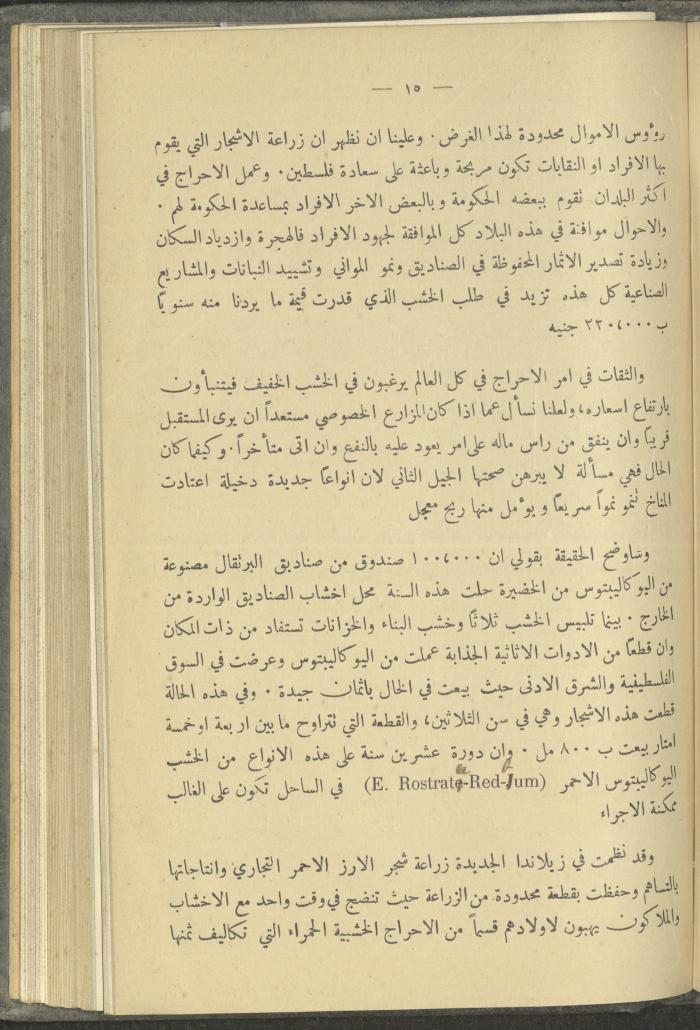 — ١٥ —
رؤوس الاموال محدودة لهذا الغرض · وعلينا ان نظهر ان زراعة الاشجار التي يقوم
بها الافراد او النقابات تكون مربحة وباعثة على سعادة فلسطين · وعمل الاحراج في
اكثر البلدان تقوم ببعضه الحكومة وبالبعض الاخر الافراد بمساعدة الحكومة لهم ·
والاحوال موافقة في هذه البلاد كل الموافقة لجهود الافراد فالهجرة وازدياد السكان
وزيادة تصدير الاثمار المحفوظة في الصناديق ونمو المواني وتشييد النباتات والمشاريع
الصناعية كل هذه تزيد في طلب الخشب الذي قدرت قيمة ما يردنا منه سنويًا
ب ٢٣٠،٠٠٠ جنيه
والثقات في امر الاحراج في كل العالم يرغبون في الخشب الخفيف فيتنبأون
بارتفاع اسعاره، ولعلنا نسأل عما اذا كان المزارع الخصوصي مستعداً ان يرى المستقبل
قريبًا وان ينفق من راس ماله على امر يعود عليه بالنفع وان اتى متأخراً · وكيفما كان
الحال فهي مسألة لا يبرهن صحتها الجيل الثاني لان انواعًا جديدة دخيلة اعتادت
المناخ تنمو نمواً سريعًا ويؤمل منها ربح معجل
وساوضح الحقيقة بقولي ان ١٠٠،٠٠٠ صندوق من صناديق البرتقال مصنوعة
من اليوكاليبتوس من الخضيرة حلت هذه السنة محل اخشاب الصناديق الواردة من
الخارج · بينما تلبيس الخشب ثلاثًا وخشب البناء والخزانات تستفاد من ذات المكان
وان قطعًا من الادوات الاثاثية الجذابة عملت من اليوكاليبتوس وعرضت في السوق
الفلسطينية والشرق الادنى حيث بيعت في الحال باثمان جيدة · وفي هذه الحالة
قطعت هذه الاشجار وهي في سن الثلاثين، والقطعة التي تتراوح ما بين اربعة او خمسة
امتار بيعت ب ٨٠٠ مل · وان دورة عشرين سنة على هذه الانواع من الخشب
اليوكاليبتوس الاحمر (E. Rostrata-Red-gum) في الساحل تكون على الغالب
ممكنة الاجراء
وقد نظمت في زيلاندا الجديدة زراعة شجر الارز الاحمر التجاري وانتاجاتها
بالتساهم وحفظت بقطعة محدودة من الزراعة حيث تنضج في وقت واحد مع الاخشاب
والملاكون يهبون لاولادهم قسماً من الاحراج الخشبية الحمراء التي تكاليف ثمنها